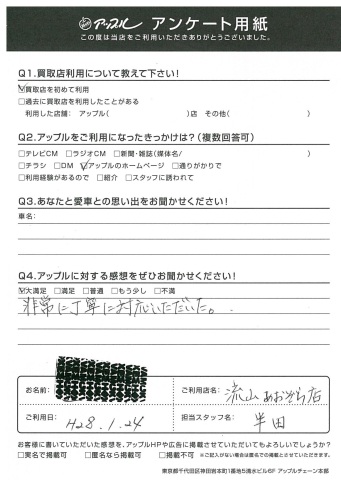 アップル アンケート用紙
この度は当店をご利用いただきありがとうございました。
Q1.買取店利用について教えて下さい!
☑買取店を初めて利用
□過去に買取店を利用したことがある
利用した店舗: アップル( )店 その他( )
Q2.アップルをご利用になったきっかけは?(複数回答可)
□テレビCM □ラジオCM □新聞・雑誌(媒体名/ )
□チラシ □DM ☑アップルのホームページ □通りがかりで
□利用経験があるので □紹介 □スタッフに誘われて
Q3.あなたと愛車との思い出をお聞かせください!
車名:
Q4.アップルに対する感想をぜひお聞かせください!
☑大満足 □満足 □普通 □もう少し □不満
非常に丁寧に対応いただいた。
お名前:
ご利用店名: 流山あおぞら店
ご利用日: H28.1.24
担当スタッフ名: 半田
お客様に書いていただいた感想を、アップルHPや広告に掲載させていただいてもよろしいでしょうか?
□実名で掲載可 □匿名なら掲載可 □掲載不可 ※ご記入がない場合は匿名での掲載とさせていただきます。
東京都千代田区神田岩本町1番地5清水ビル6F アップルチェーン本部